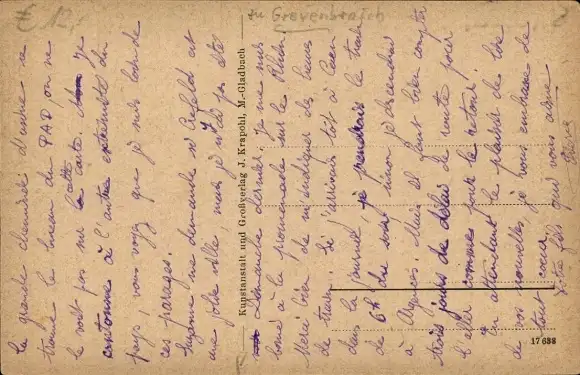 € 12,-
zu Grevenbroich
la grande cheminée d'usine se
trouve le bureau du PAD, on ne
le voit pas sur cette carte. Je
cantonne à l'autre extrémité du
pays, vous voyez que je suis loin de
ces parages.
Suzanne me demande si Crefeld est
une jolie ville, mais je n'y ai pas été
Dimanche dernier. Je me suis
borné à la promenade sur le Rhin.
Merci bien de m'indiquer les heures
de trains. Si j'arrivais tôt à Caen
dans la journée, je prendrais le train
de 6h du soir sinon je descendrai
à Argences. Mais il faut bien compter
trois jours de délai de route pour
l'aller comme pour le retour.
En attendant le plaisir de lire
de vos nouvelles, je vous embrasse de
tout coeur
votre fils qui vous aime
Kunstanstalt und Großverlag J. Krapohl, M.-Gladbach
17 638